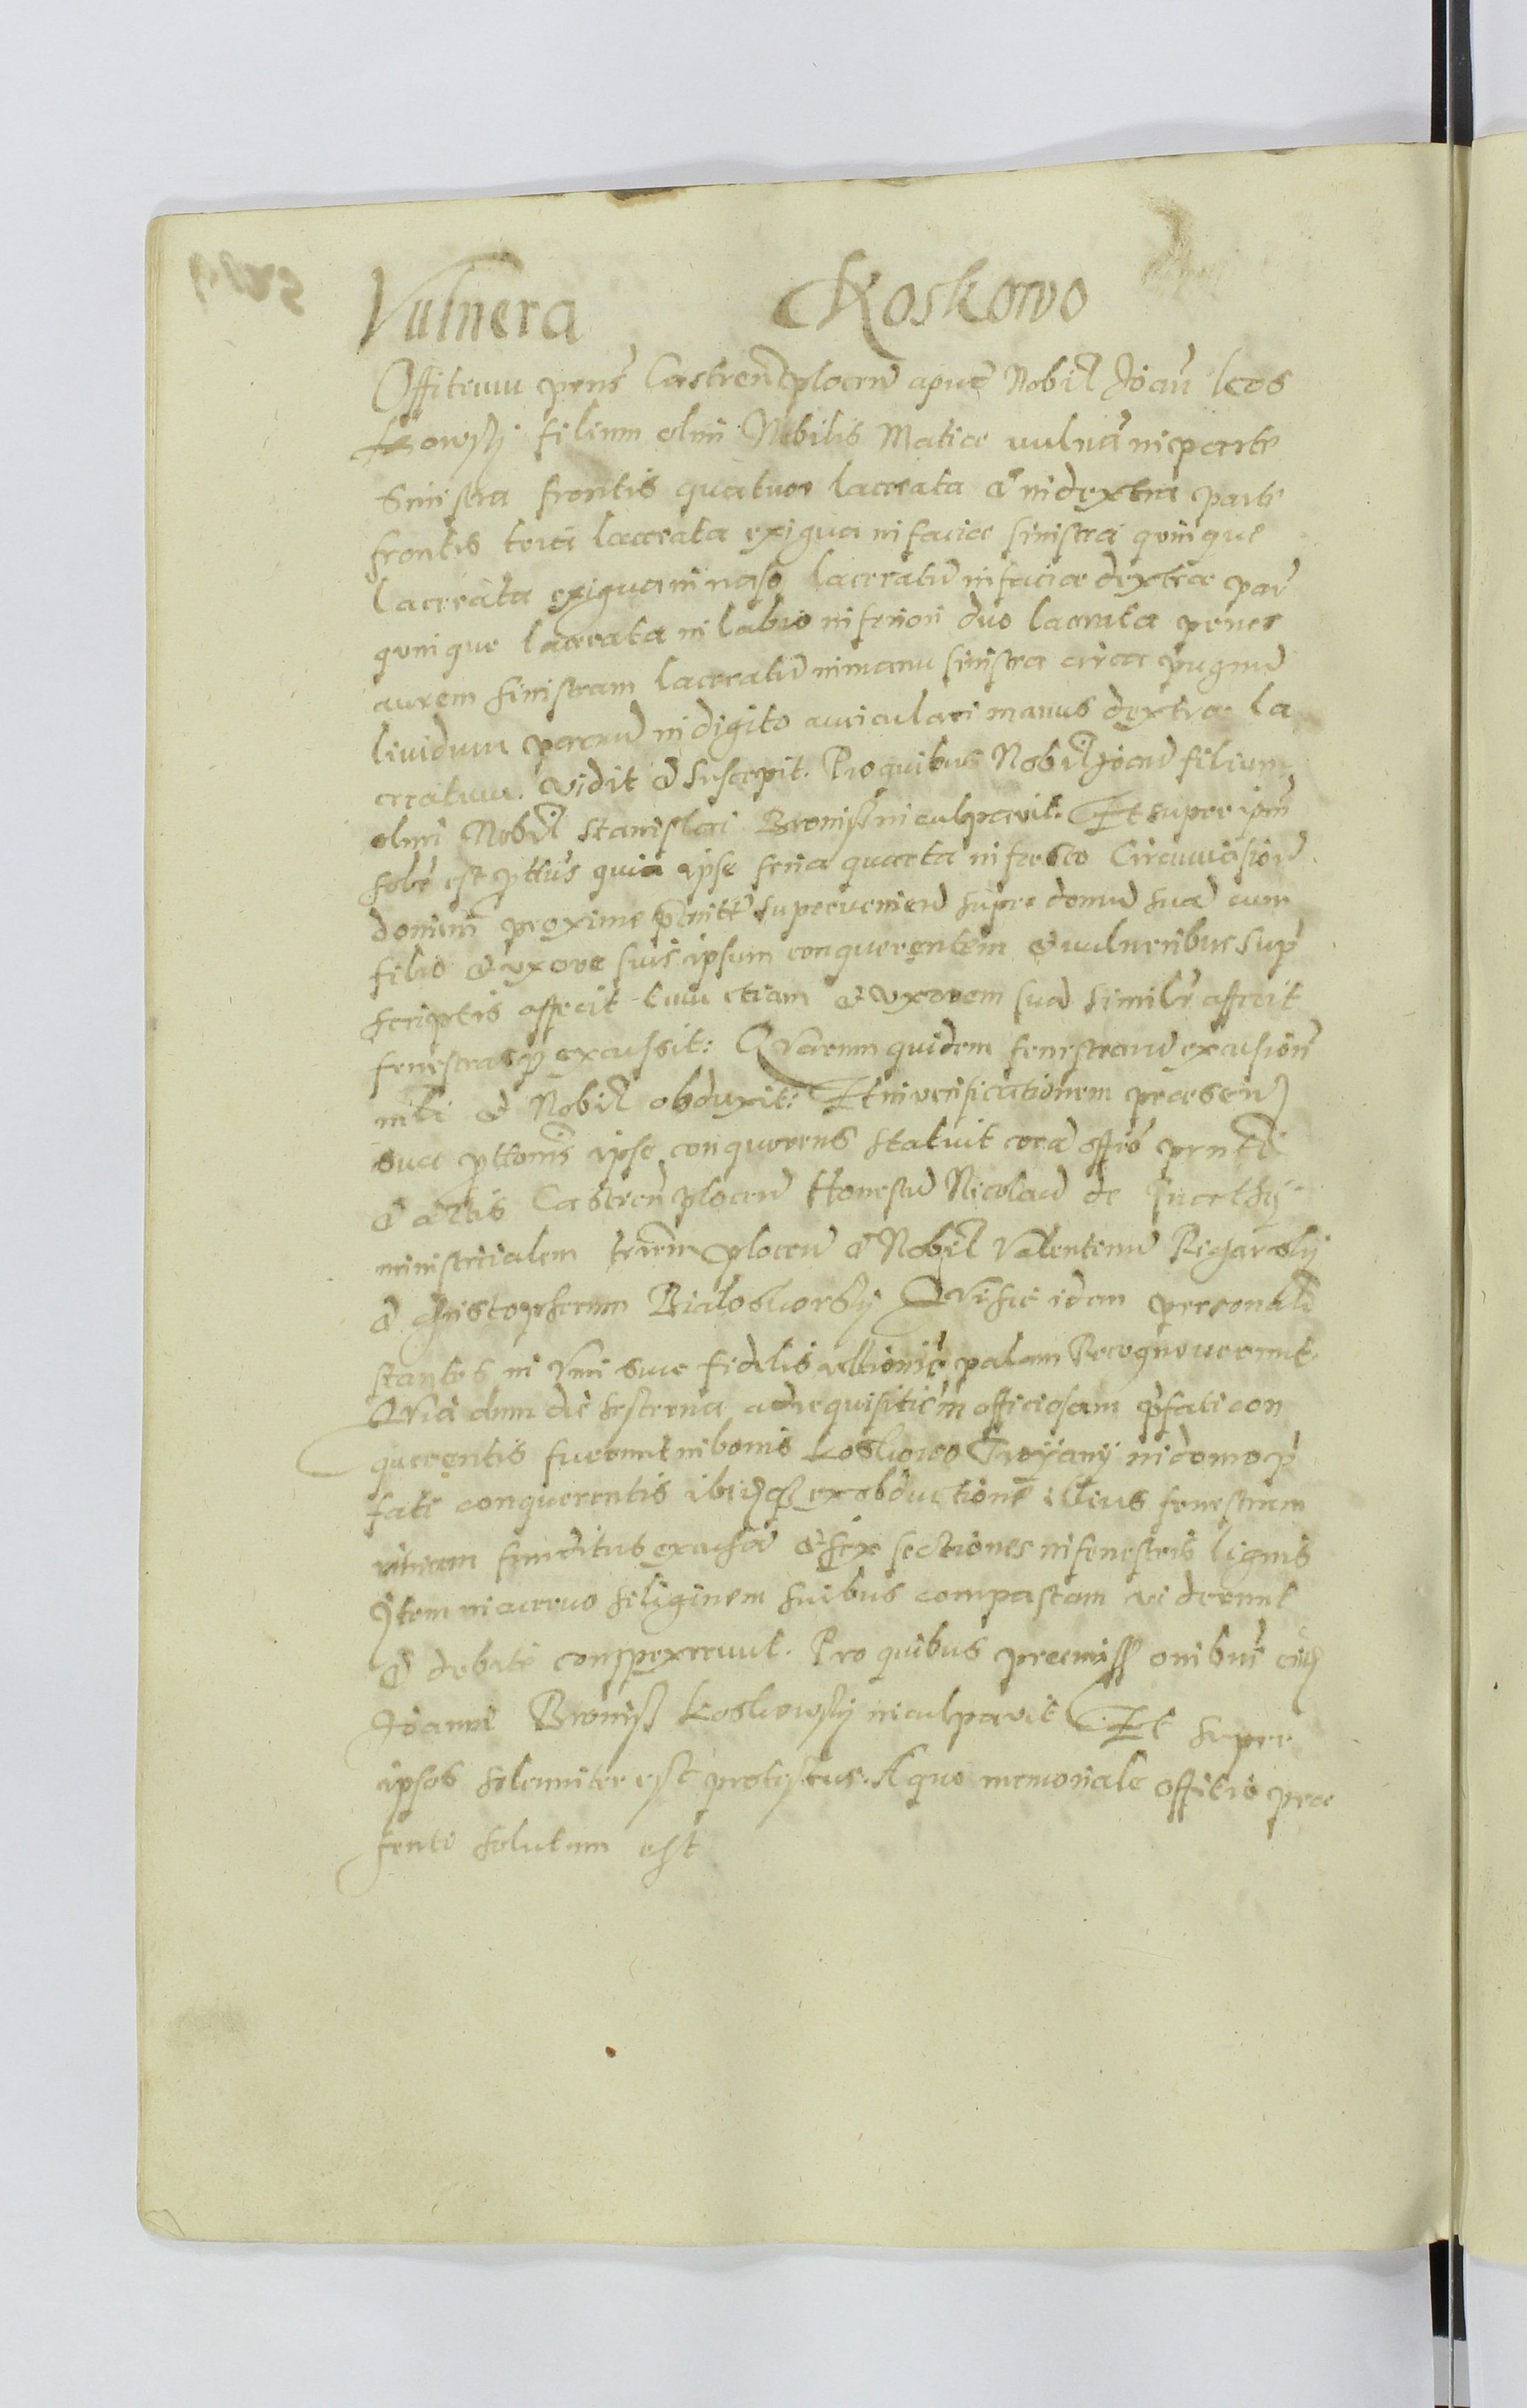 Vulnera Koskowo
Offitium prns Castren plocen apud Nobil Joan Kos
kowsky filium olim Nobilis Matiae uulnera in parte
Sinistra frontis quatuor lacerata et in dextra parte
frontis tria lacerata exigua in facie sinistra quinque
lacerata exigua in naso laceratu in faciae dextrae par
quinque lacerata in labio inferiori duo lacerata penes
aurem sinistram laceratu in manu sinistra circa pugnu
liuidum paruu in digito auriculari manus dextrae la
ceratum. vidit et suscepit. Pro quibus Nobil Joan filium
olim Nobil Stanislai Bronissz inculpauit. Et super ipm
sole est prottus quia ipse feria quarta in festo Circumcision
domini proxime superuenien supra domu sua cum
filio et vxore suis ipsum conquerentem et uulneribus sup
scriptis affecit tum etiam et vxorem sua similr affecit
fenestrasq excussit: Quarum quidem fenestraru excusione
mli et Nobil obduxit: Et in verificationem praesen
sua prottonis ipse conquerens statuit cora offo prnti
et actis Castren plocen Honestu Nicolau de
ministerialem trarum plocen et Nobil Valentinu
et Christopherum Bialoskorsky Qui sic idem personalr
stantes in Vim suae fidelis rellionis palam Recognouerunt.
Quia dum die hesterna ad requisitiem officiosam pfati con
querentis fuerunt in bonis Koskowo Troyany in domo p
fati conquerentis ibidq ex obductione illius fenestram
vitream funditus excussa et sex sectiones in fenestris lignis
Item in aceruo siliginem suibus compastam viderunt
et debite conspexerunt. Pro quibus praemiss onibus eud
Joanne Broniss Koskowsky inculpauit Et super
ipsos solenniter est protestus. A quo memoriale offitio prae
senti solutum est